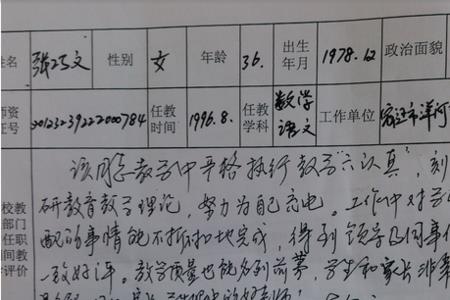 姓名 张巧文 性别 女 年龄 36. 出生年月 1978.12 政治面貌
师资 证号 20123239222000784 任教时间 1996.8. 任教学科 数学 语文 工作单位 宿迁市洋河
该同志教学中严格执行教学“六认真”，刻
研教育教学理论，努力为自己充电。工作中对学
配的事情能不折不扣地完成，得到领导及同事
一致好评。教学质量也能名列前茅，学生和家长非常
校教
部门
任职
间教
学评价